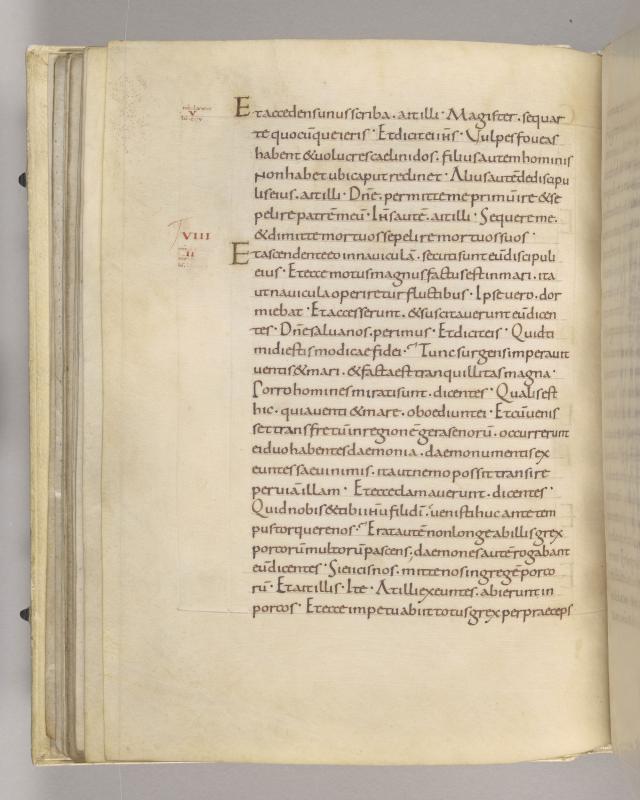 V
Et accedens unus scriba . ait illi · Magister . sequar
te quocūque ieris · Et dicit ei ih̄s · Vulpes foueas
habent & uolucres caeli nidos . filius autem hominis
non habet ubi caput reclinet · Alius autē de discipu
lis eius . ait illi · Dn̄e . permitte me primū ire & se
pelire patrē meū · Ih̄s autē . ait illi · Sequere me .
& dimitte mortuos sepelire mortuos suos ·
VIII
II
Et ascendente eo in nauiculā . secuti sunt eū discipuli
eius · Et ecce motus magnus factus est in mari . ita
ut nauicula operiretur fluctibus · Ipse uero . dor
miebat · Et accesserunt . & suscitauerunt eū dicen
tes · Dn̄e salua nos . perimus · Et dicit eis · Quid ti
midi estis modicae fidei · Tunc surgens imperauit
uentis & mari . & facta est tranquillitas magna ·
Porro homines mirati sunt . dicentes · Qualis est
hic . quia uenti & mare . oboediunt ei · Et cū uenis
set trans fretū in regionē gerasenorū . occurrerunt
ei duo habentes daemonia . de monumentis ex
euntes saeui nimis . ita ut nemo possit transire
per uiā illam · Et ecce clamauerunt . dicentes ·
Quid nobis & tibi ih̄u fili dī . uenisti huc ante tem
pus torquere nos · Erat autē non longe ab illis grex
porcorū multorū pascens ; daemones autē rogabant
eū dicentes · Si eicis nos . mitte nos in gregē porco
rū · Et ait illis · Ite · At illi exeuntes . abierunt in
porcos · Et ecce impetu abiit totus grex per praeceps